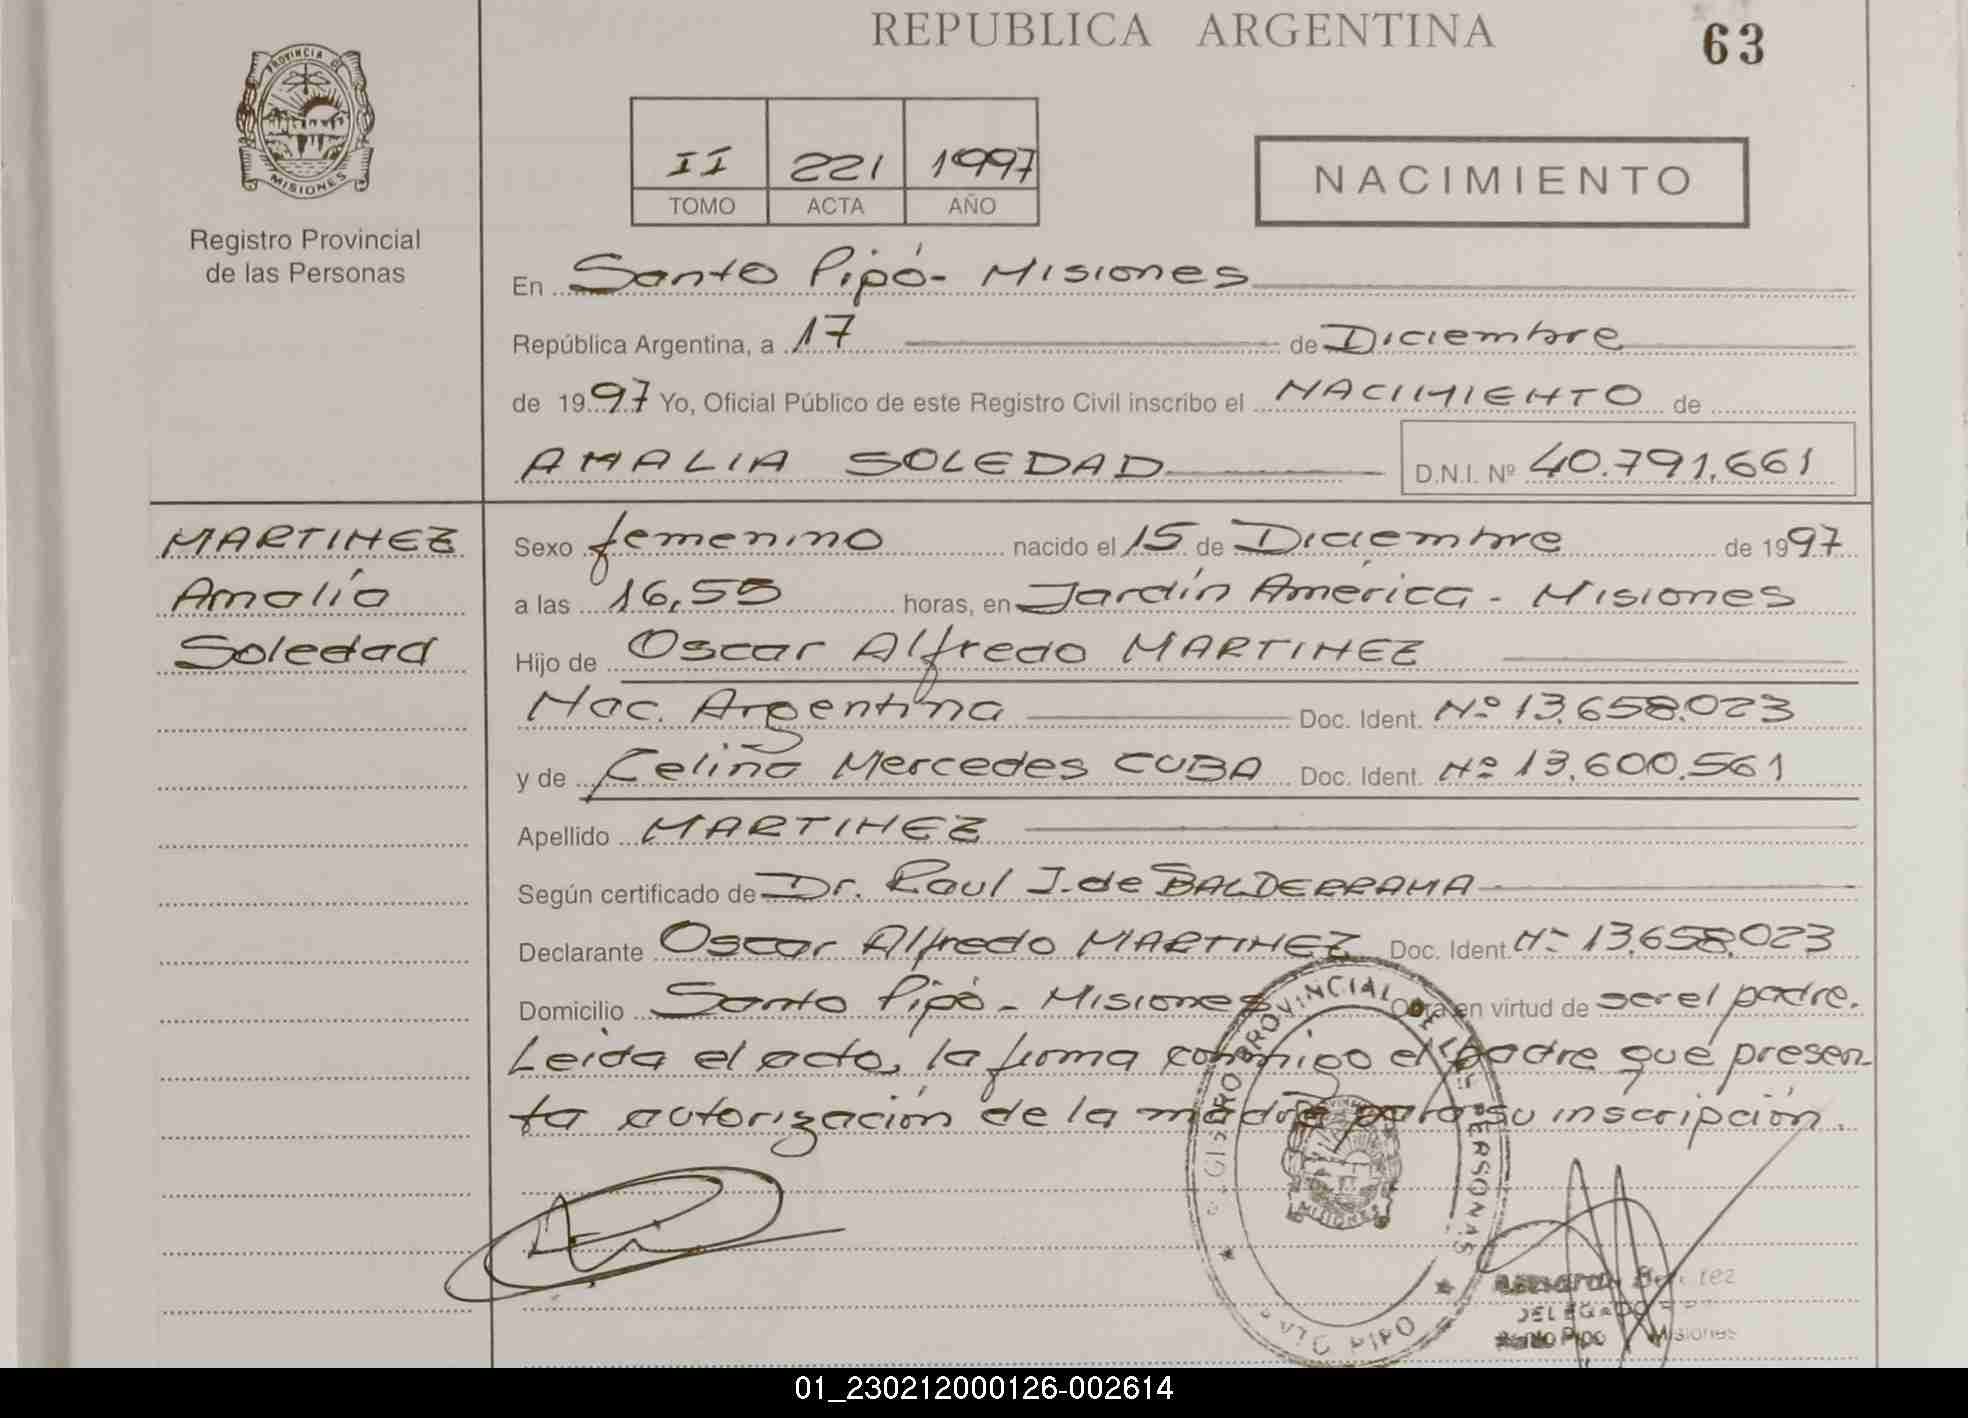 REPUBLICA ARGENTINA
63
PROVINCIA DE
MISIONES
Registro Provincial
de las Personas
II 221 1997
TOMO ACTA AÑO
NACIMIENTO
En Santo Pipó - Misiones
República Argentina, a 17 de Diciembre
de 1997 Yo, Oficial Público de este Registro Civil inscribo el NACIMIENTO de
AMALIA SOLEDAD D.N.I. Nº 40.791.661
MARTINEZ
Amalia
Soledad
Sexo femenino nacido el 15 de Diciembre de 1997
a las 16,55 horas, en Jardín América - Misiones
Hijo de Oscar Alfredo MARTINEZ
Nac. Argentina Doc. Ident. Nº 13.658.023
y de Celina Mercedes CUBA Doc. Ident. Nº 13.600.561
Apellido MARTINEZ
Según certificado de Dr. Raul J. de BALDERRAMA
Declarante Oscar Alfredo MARTINEZ Doc. Ident. Nº 13.658.023
Domicilio Santo Pipó - Misiones Obra en virtud de ser el padre.
Leida el acta, la firma conmigo el padre que presen-
ta autorización de la madre para su inscripción.
REGISTRO PROVINCIAL DE LAS PERSONAS
MISIONES
SANTO PIPO
DELEGADO
Santo Pipo Misiones
01_230212000126-002614